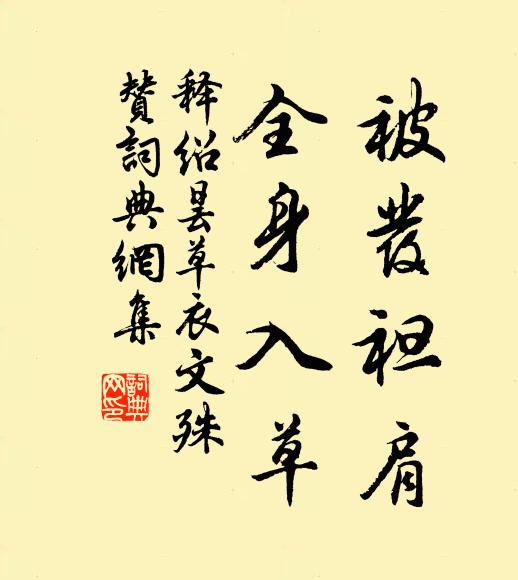 被发袒肩
全身入草
释绍昙草衣文殊
赞词典网集
詞典
网印